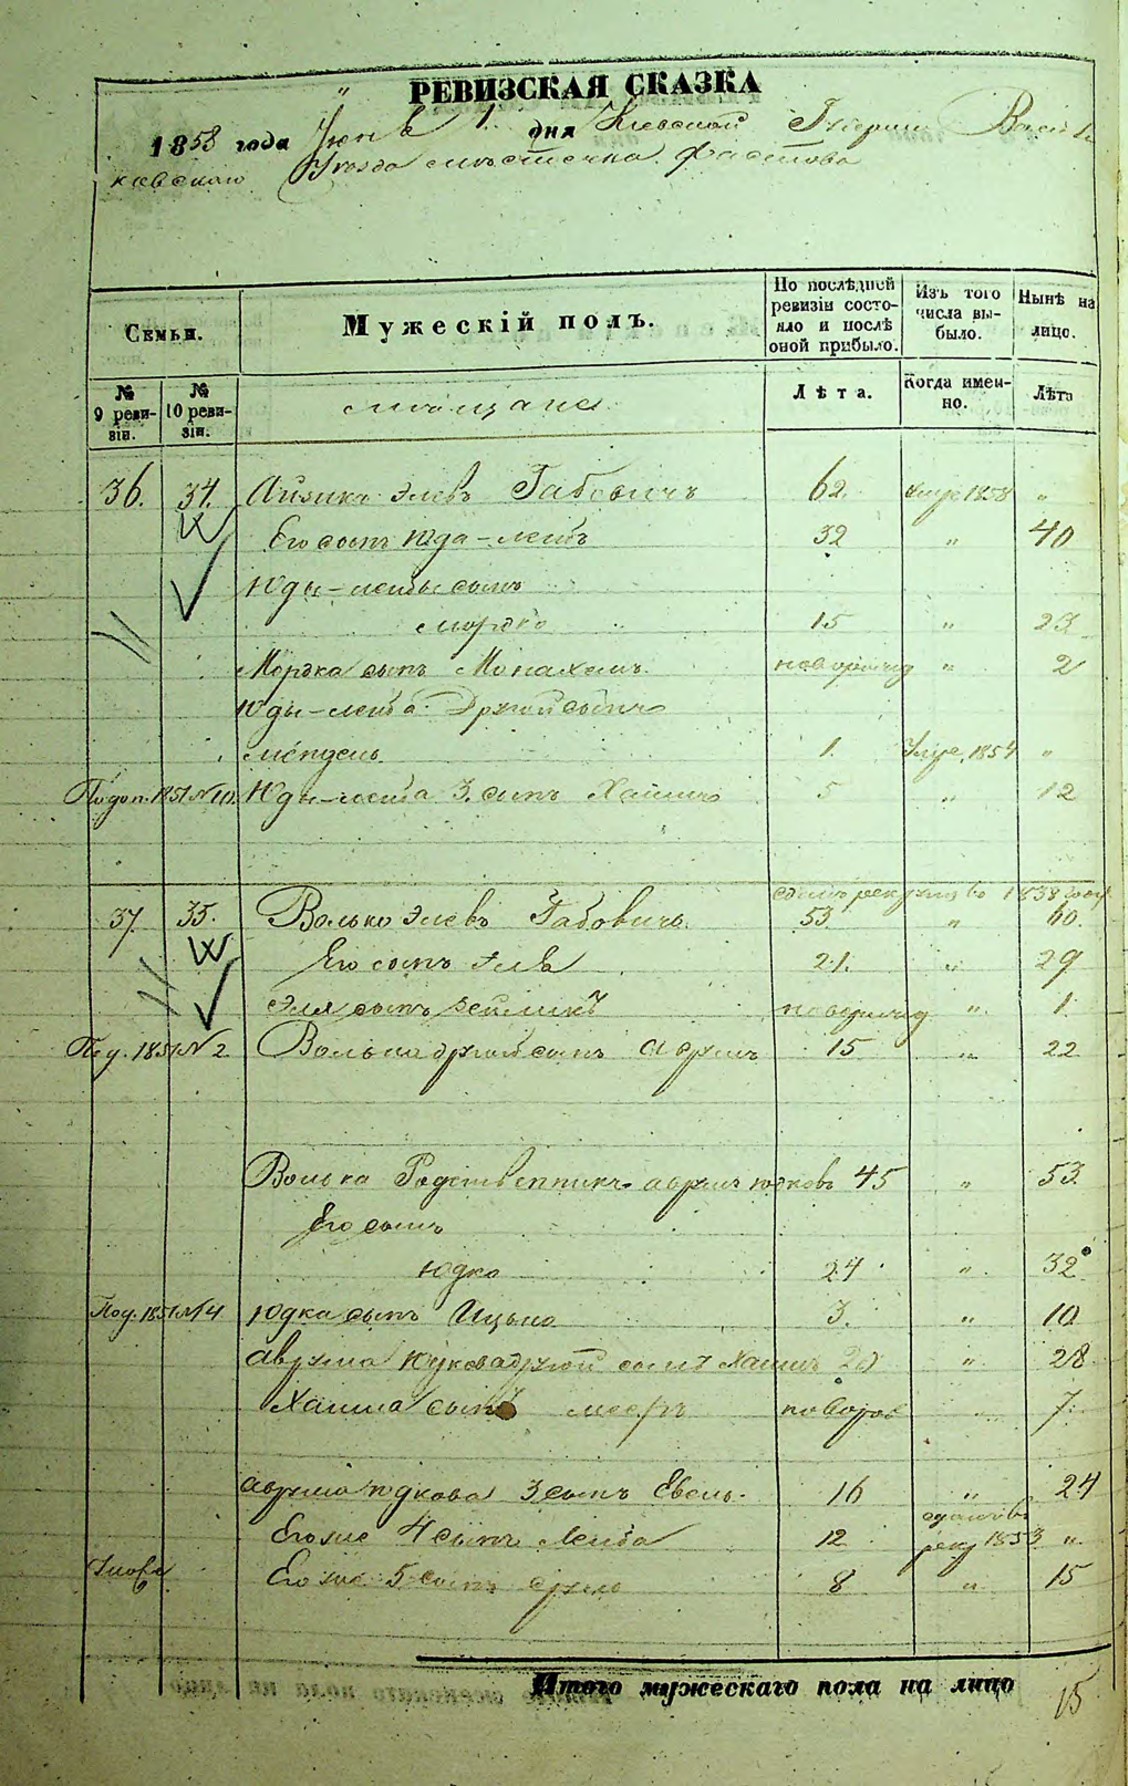 РЕВИЗСКАЯ СКАЗКА
1858 года Июня 1 дня Киевской Губерніи Василь
ковскаго Уезда местечка Фастова
Семьи.
Мужескій полъ.
По послѣдней ревизіи состояло и послѣ оной прибыло.
Изъ того числа выбыло.
Нынѣ на лицо.
№ 9 ревизіи.
№ 10 ревизіи.
мещане
Лѣта.
Когда именно.
Лѣта
36. 34. Айзикъ Элевъ Габовичъ 62. 1858 "
Его сынъ Юда-Лейбъ 32 " 40
Юды-Лейбы сынъ
Мордко 15 " 23
Мордка сынъ Монахемъ новорожд " 2
Юды-Лейба Другой сынъ
Мендель 1. Умре, 1854 "
По доп. 1851 N 10. Юды-Лейба 3. сынъ Хаимъ 5 " 12
сданъ рекрутъ во 1838 году
37. 35. Волько Элевъ Габовичъ 53. " 60.
Его сынъ Эля 21. " 29
Эля сынъ Зейликъ новорожд " 1
Под. 1851 N 2 Волька другой сынъ Аврумъ 15 " 22
Волька Родственникъ Аврумъ Юдковъ 45 " 53
Его сынъ
Юдко 24 " 32
Под. 1851 N 4 Юдка сынъ Ицько 3. " 10
Аврума Юдкова другой сынъ Хаимъ 20 " 28
Хаима сынъ Мееръ новорож " 7
Аврума Юдкова 3 сынъ Евель 16 " 24
Его же 4 сынъ Лейба 12 сданъ въ рекр 1853 "
Его же 5 сынъ Сруль 8 " 15
Итого мужескаго пола на лицо 15